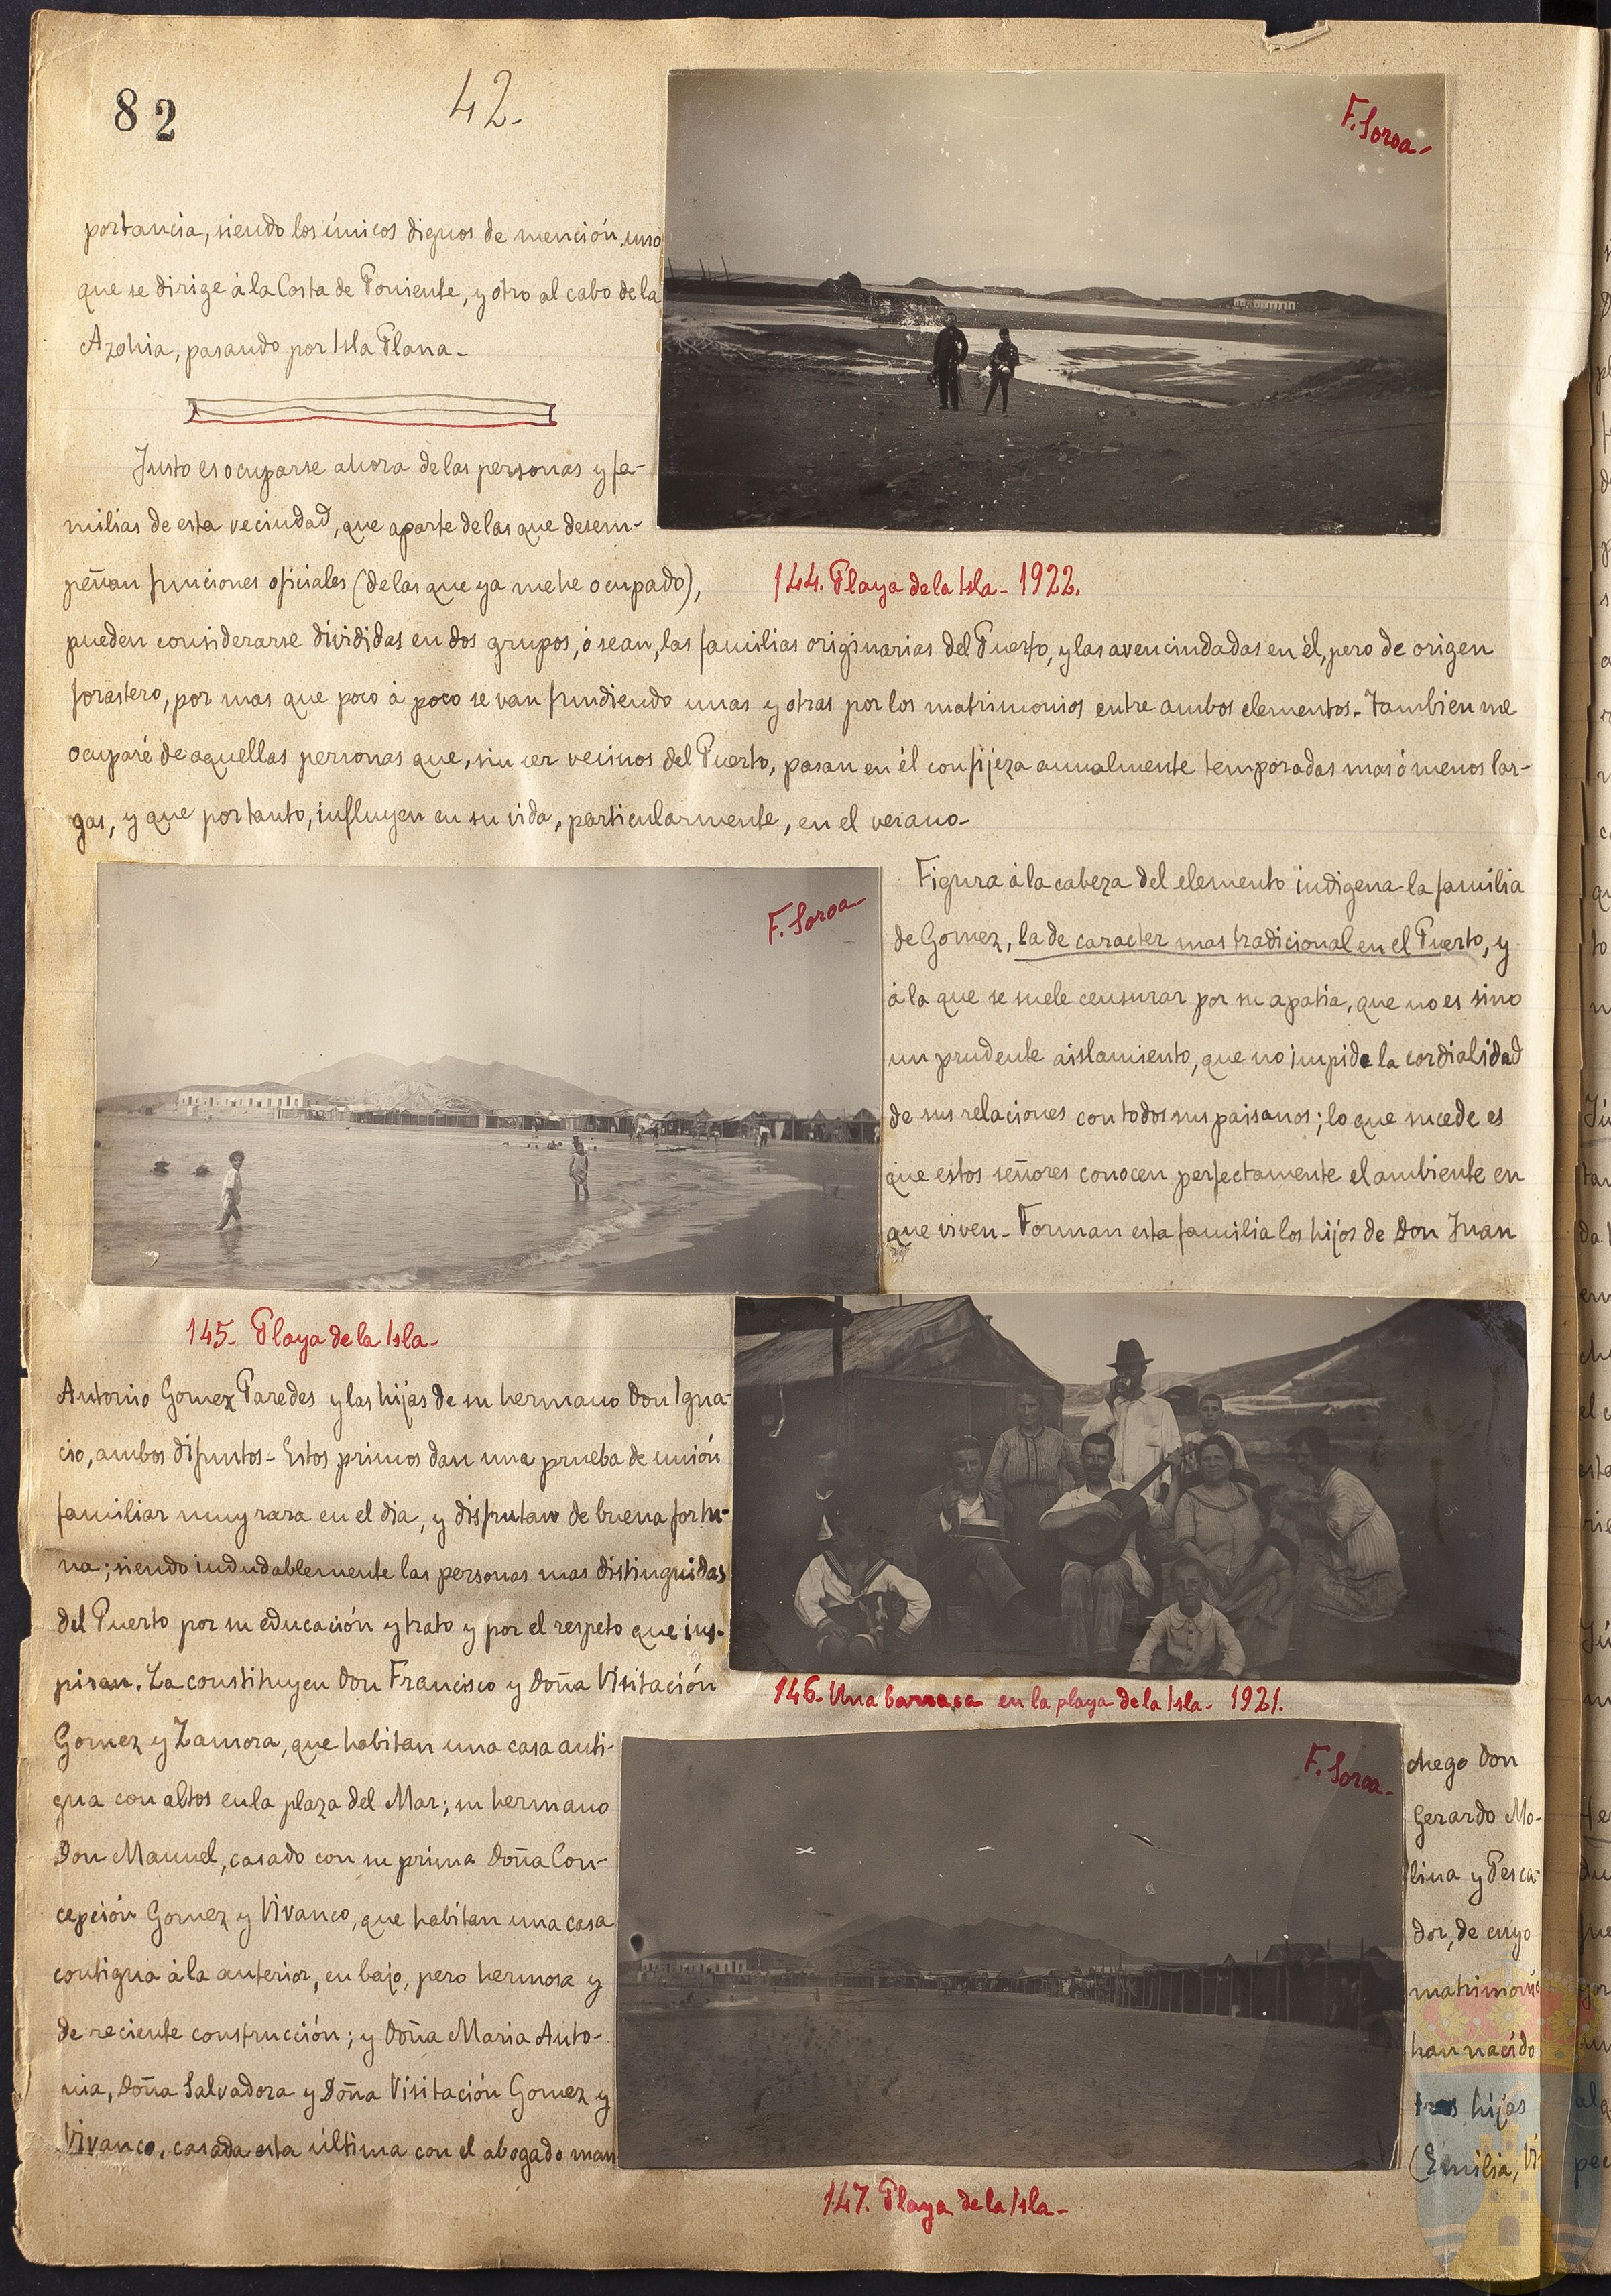 82
42.
F. Soroa-
portancia, siendo los únicos dignos de mención, uno
que se dirige á la Costa de Poniente, y otro al cabo de la
Azohia, pasando por Isla Plana-
Justo es ocuparse ahora de las personas y fa-
milias de esta vecindad, que aparte de las que desem-
peñan funciones oficiales (de las que ya me he ocupado),
144. Playa de la Isla- 1922.
pueden considerarse divididas en dos grupos, ó sean, las familias originarias del Puerto, y las avencindadas en él, pero de origen
forastero, por mas que poco á poco se van fundiendo unas y otras por los matrimonios entre ambos elementos- Tambien me
ocuparé de aquellas personas que, sin cer vecinos del Puerto, pasan en él con fijeza anualmente temporadas mas ó menos lar-
gas, y que por tanto, influyen en su vida, particularmente, en el verano-
F. Soroa-
Figura á la cabeza del elemento indigena la familia
de Gomez, la de caracter mas tradicional en el Puerto, y
á la que se suele censurar por su apatia, que no es sino
un prudente aislamiento, que no impide la cordialidad
de sus relaciones con todos sus paisanos; lo que sucede es
que estos señores conocen perfectamente el ambiente en
que viven- Forman esta familia los hijos de Don Juan
145- Playa de la Isla-
Antonio Gomez Paredes y las hijas de su hermano Don Igna-
cio, ambos difuntos- Estos primos dan una prueba de unión
familiar muy rara en el dia, y disfrutan de buena fortu-
na; siendo indudablemente las personas mas distinguidas
del Puerto por su educación y trato y por el respeto que ins-
piran. La constituyen Don Francisco y Doña Visitación
146- Una barraca en la playa de la Isla- 1921.
Gomez y Zamora, que habitan una casa anti-
gua con altos en la plaza del Mar; su hermano
Don Manuel, casado con su prima Doña Con-
cepción Gomez y Vivanco, que habitan una casa
contigua á la anterior, en bajo, pero hermosa y
de reciente construcción; y Doña Maria Anto-
nia, Doña Salvadora y Doña Visitación Gomez y
Vivanco, casada esta última con el abogado man
F. Soroa-
chego Don
Gerardo Mo-
lina y Pesca-
dor, de cuyo
matrimonio
han nacido
tres hijas
(Emilia, Vi
147. Playa de la Isla-